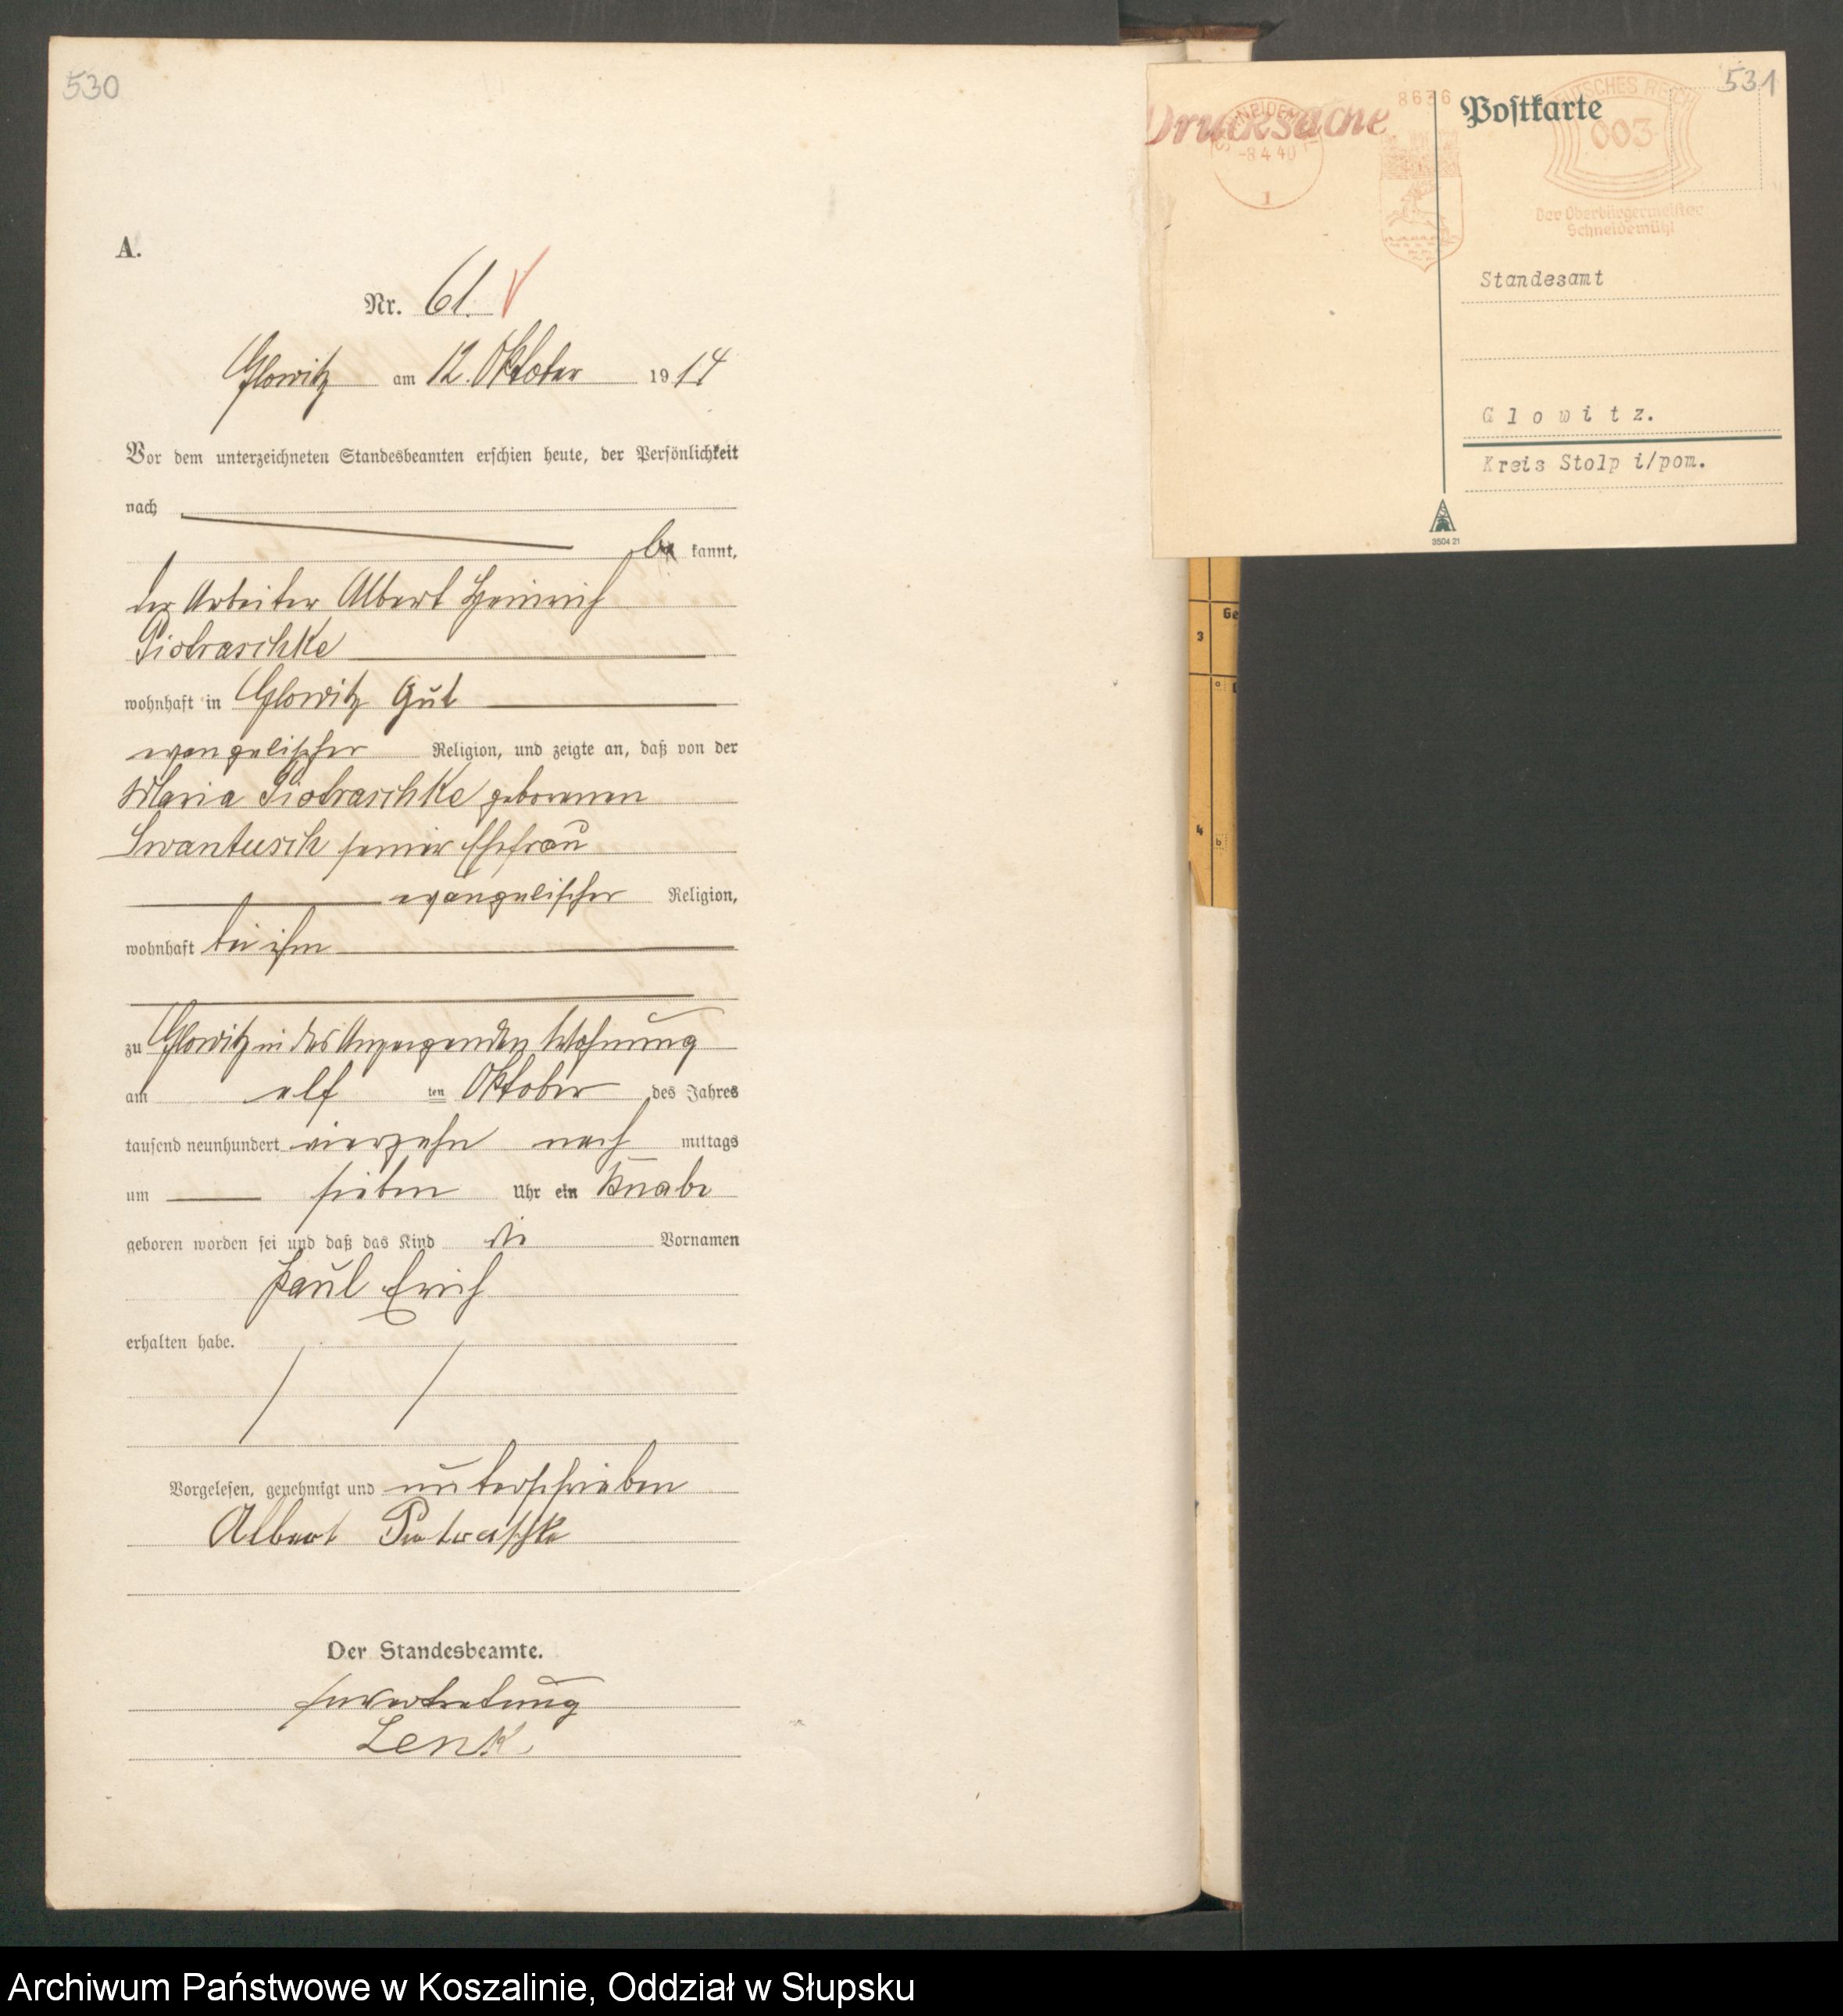 530
A.
Nr. 61.
Glowitz am 12. Oktober 1914
Vor dem unterzeichneten Standesbeamten erschien heute, der Persönlichkeit
nach
be kannt,
der Arbeiter Albert Heinrich
Piotraschke
wohnhaft in Glowitz Gut
evangelischer Religion, und zeigte an, daß von der
Maria Piotraschke geborenen
Swantusch seiner Ehefrau
evangelischer Religion,
wohnhaft bei ihm
zu Glowitz in des Anzeigenden Wohnung
am elf ten Oktober des Jahres
tausend neunhundert vierzehn nach mittags
um sieben Uhr ein Knabe
geboren worden sei und daß das Kind die Vornamen
Paul Erich
erhalten habe.
Vorgelesen, genehmigt und unterschrieben
Albert Piotraschke
Der Standesbeamte.
In Vertretung
Lenk.
531
Drucksache
SCHNEIDEMÜHL
-8.4.40
1
8636
Postkarte
DEUTSCHES REICH
003
Der Oberbürgermeister
Schneidemühl
Standesamt
Glowitz.
Kreis Stolp i/pom.
3504 21
Ge
3
a
4
b
Archiwum Państwowe w Koszalinie, Oddział w Słupsku